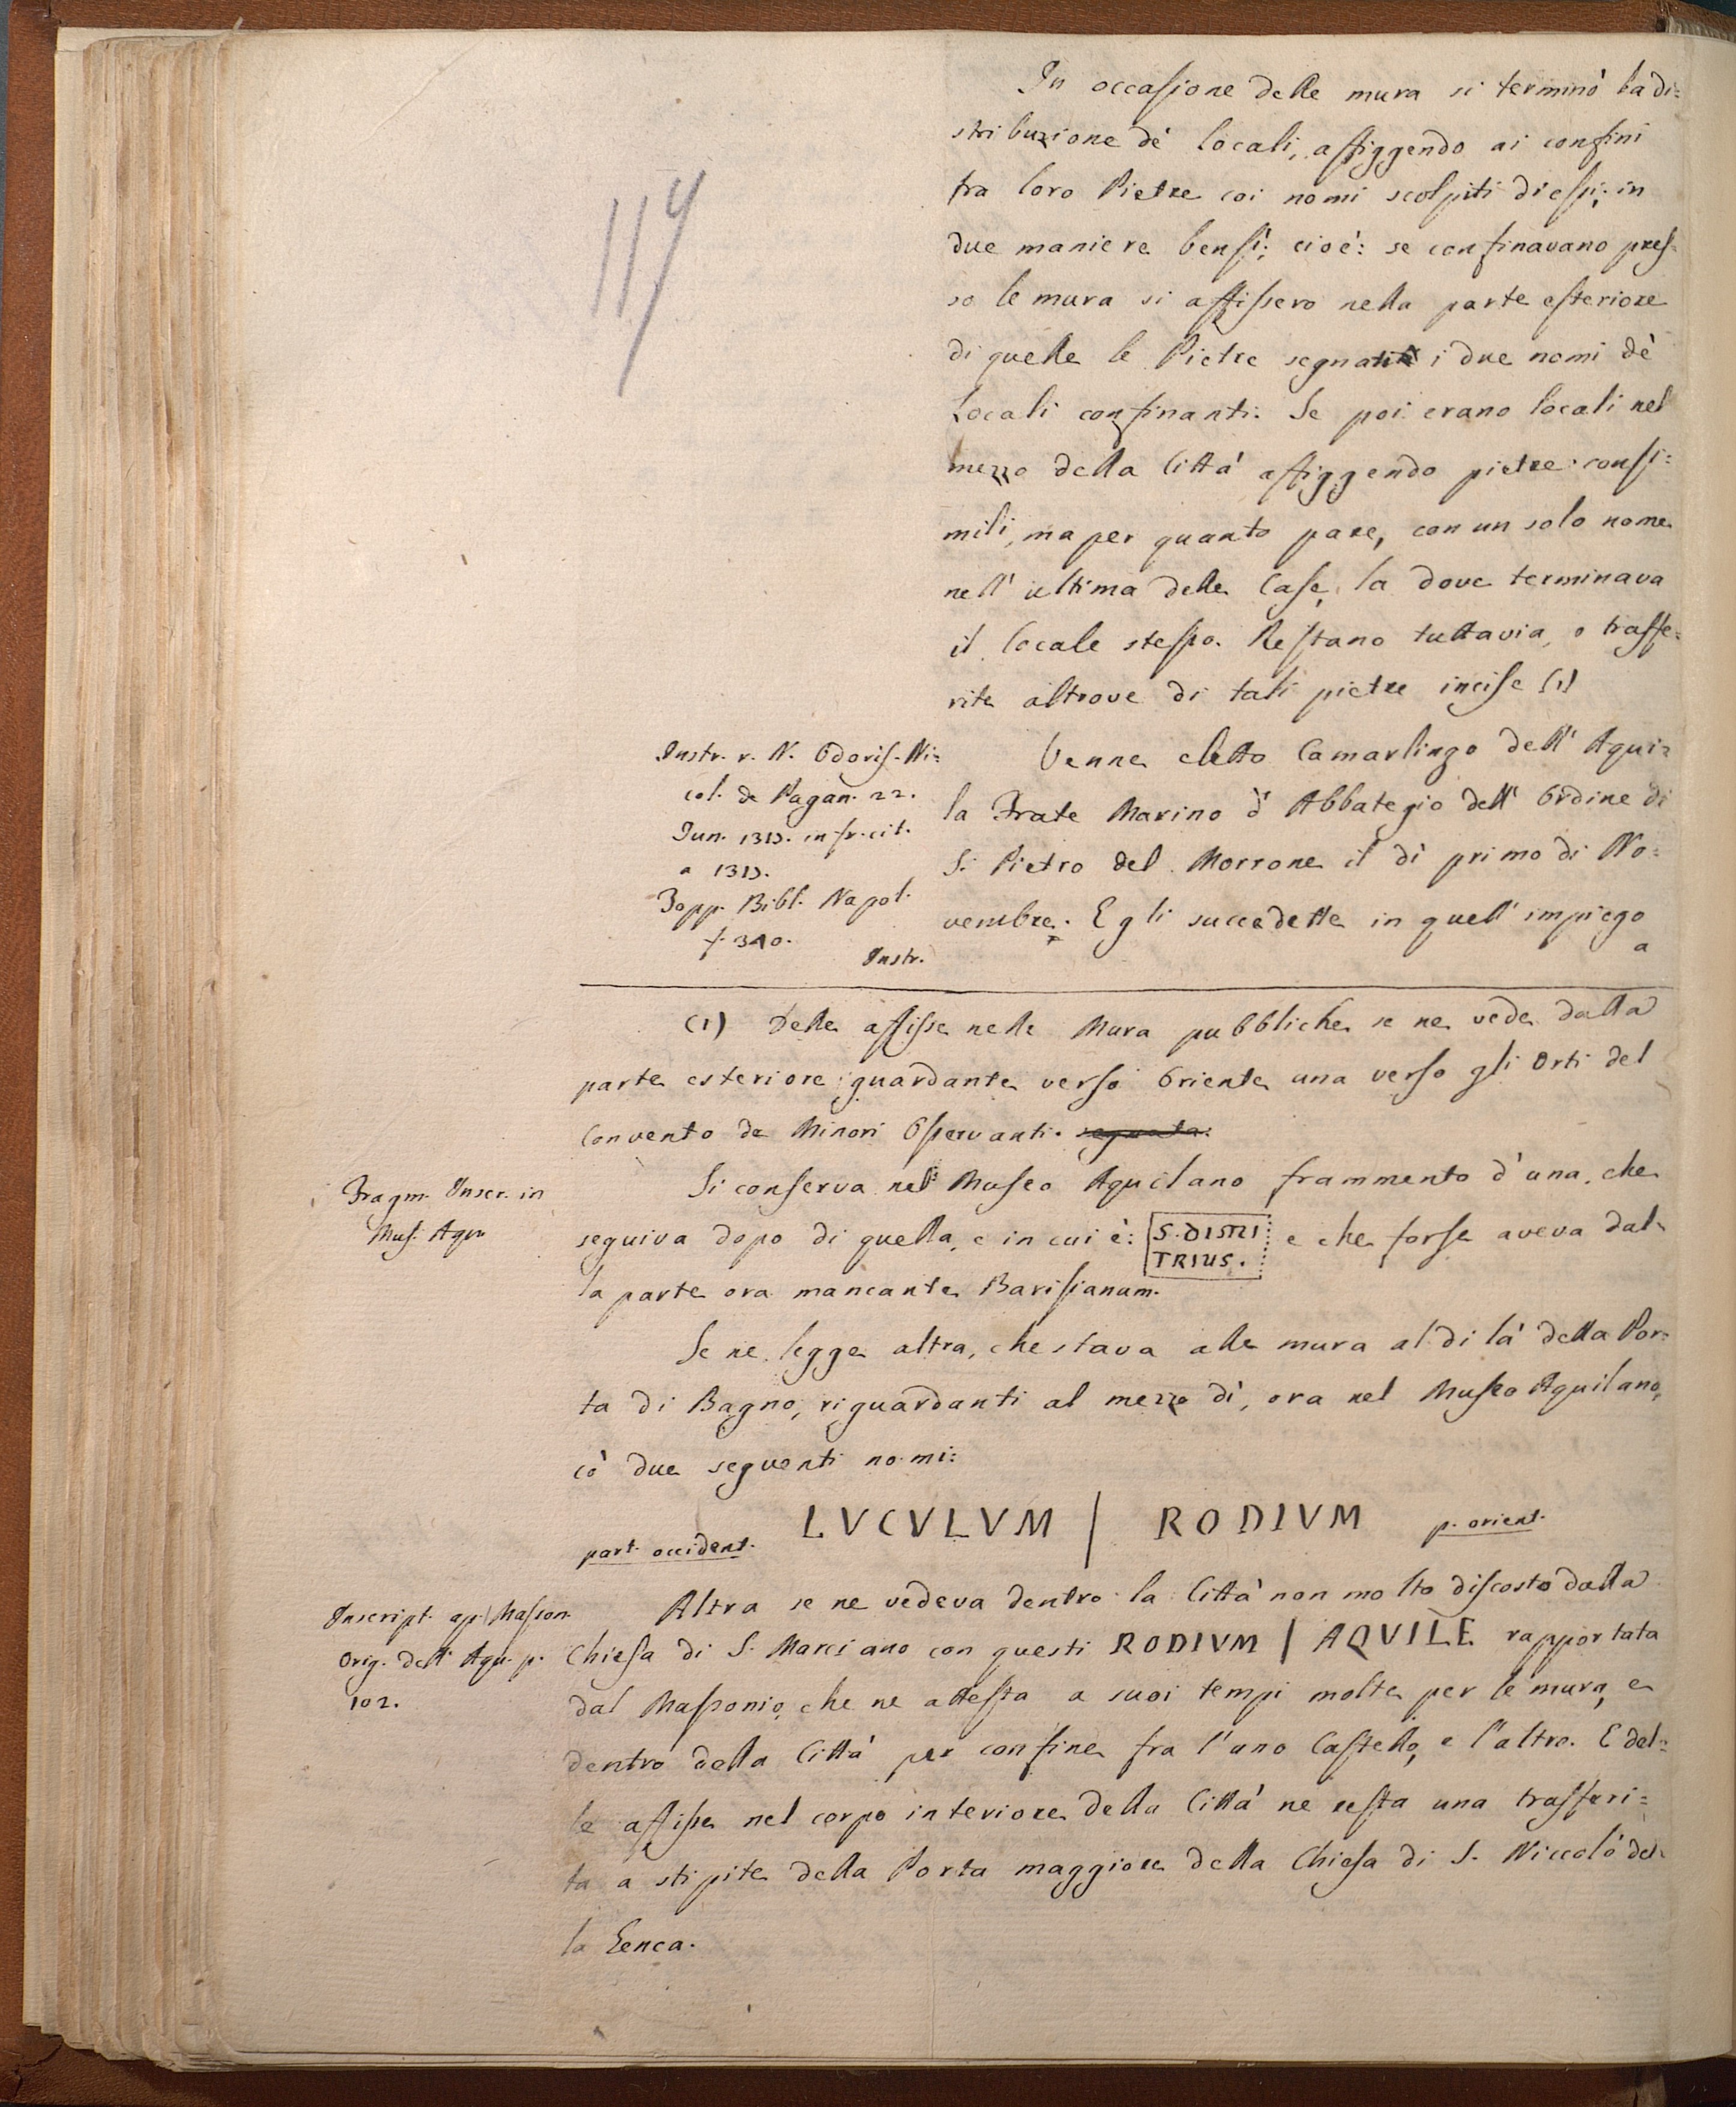 114
In occasione delle mura si terminò la di=
stribuzione dè locali, affiggendo ai confini
tra loro Pietre coi nomi scolpiti di essi; in
due maniere bensì; cioè: se confinavano pres=
so le mura si affissero nella parte esteriore
di quelle le Pietre i due nomi dè
Locali confinanti. Se poi erano locali nel
mezzo della Città affiggendo pietre consi=
mili, ma per quanto pare, con un solo nome
nell' ultima delle Case, la dove terminava
il locale stesso. Restano tuttavia, o trasfe=
rite altrove di tali pietre incise (1)
Venne eletto Camarlingo dell' Aqui=
la Frate Marino d' Abbategio dell' Ordine di
S. Pietro del Morrone il dì primo di No=
vembre. Egli succedette in quell' impiego
a
Instr. r. N. Odoris. Ni=
col. de Pagan. 22.
Jun. 1315. infr. cit.
a 1315.
Topp. Bibl. Napol.
f. 340.
Instr.
(1) Delle affisse nelle Mura pubbliche se ne vede dalla
parte esteriore guardante verso Oriente una verso gli Orti del
Convento de Minori Osservanti. segnata:
Fragm. Inscr. in
Mus. Aqu.
Si conserva nel Museo Aquilano frammento d' una, che
seguiva dopo di quella, e in cui è: S. DIMI e che forse aveva dal=
TRIUS.
la parte ora mancante Barisianum.
Se ne legge altra, che stava alle mura al di là della Por=
ta di Bagno, riguardanti al mezzo dì, ora nel Museo Aquilano,
cò due seguenti nomi:
part. occident. LVCVLVM | RODIVM p. orient.
Inscript. ap. Masson.
Orig. dell' Aqu. p.
102.
Altra se ne vedeva dentro la Città non molto discosto dalla
Chiesa di S. Marciano con questi RODIVM | AQVILE rapportata
dal Massonio, che ne attesta a suoi tempi molte per le mura, e
dentro della Città per confine fra l' uno Castello, e l' altro. E del=
le affisse nel corpo interiore della Città ne resta una trasferi=
ta a stipite della Porta maggiore della Chiesa di S. Niccolò del=
la Genca.